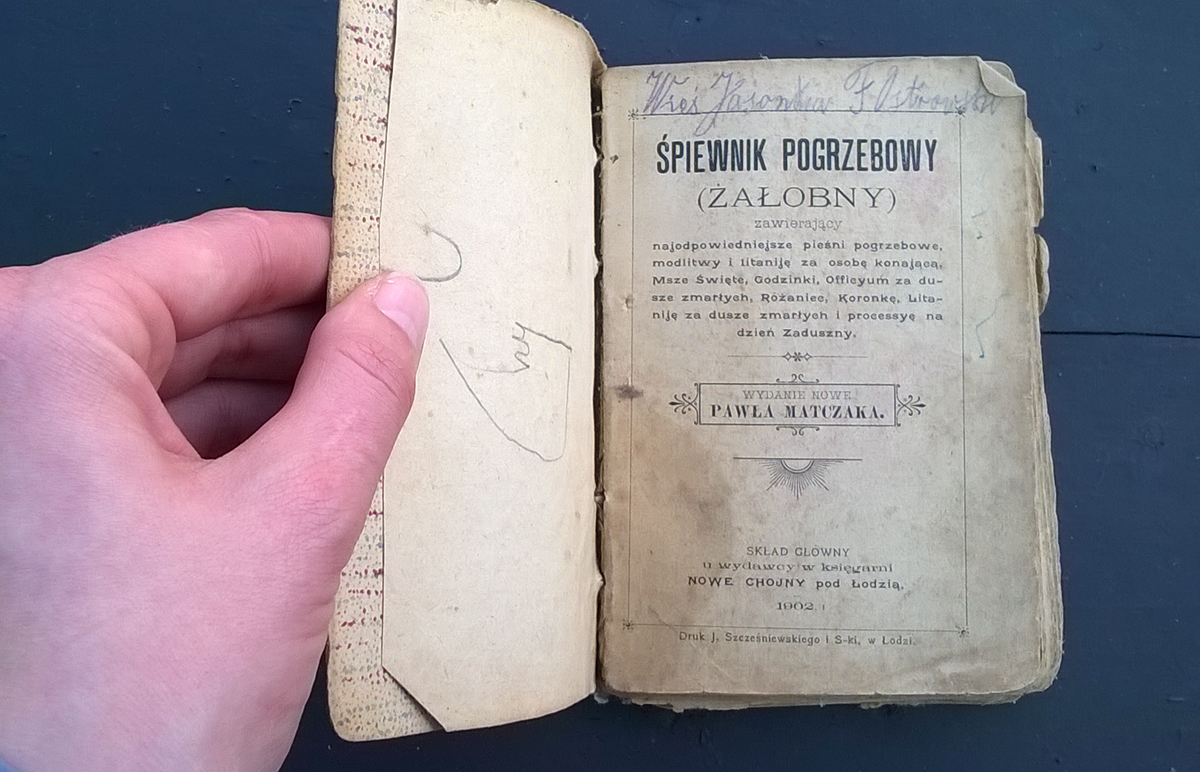 Wieś Jasonka F Ostrowski
ŚPIEWNIK POGRZEBOWY
(ŻAŁOBNY)
zawierający
najodpowiedniejsze pieśni pogrzebowe,
modlitwy i litaniję za osobę konającą,
Msze Święte, Godzinki, Officyum za du-
sze zmarłych, Różaniec, Koronkę, Lita-
niję za dusze zmarłych i processyę na
dzień Zaduszny.
WYDANIE NOWE
PAWŁA MATCZAKA.
SKŁAD GŁÓWNY
u wydawcy w księgarni
NOWE CHOJNY pod Łodzią.
1902.
Druk J. Szcześniewskiego i S-ki, w Łodzi.